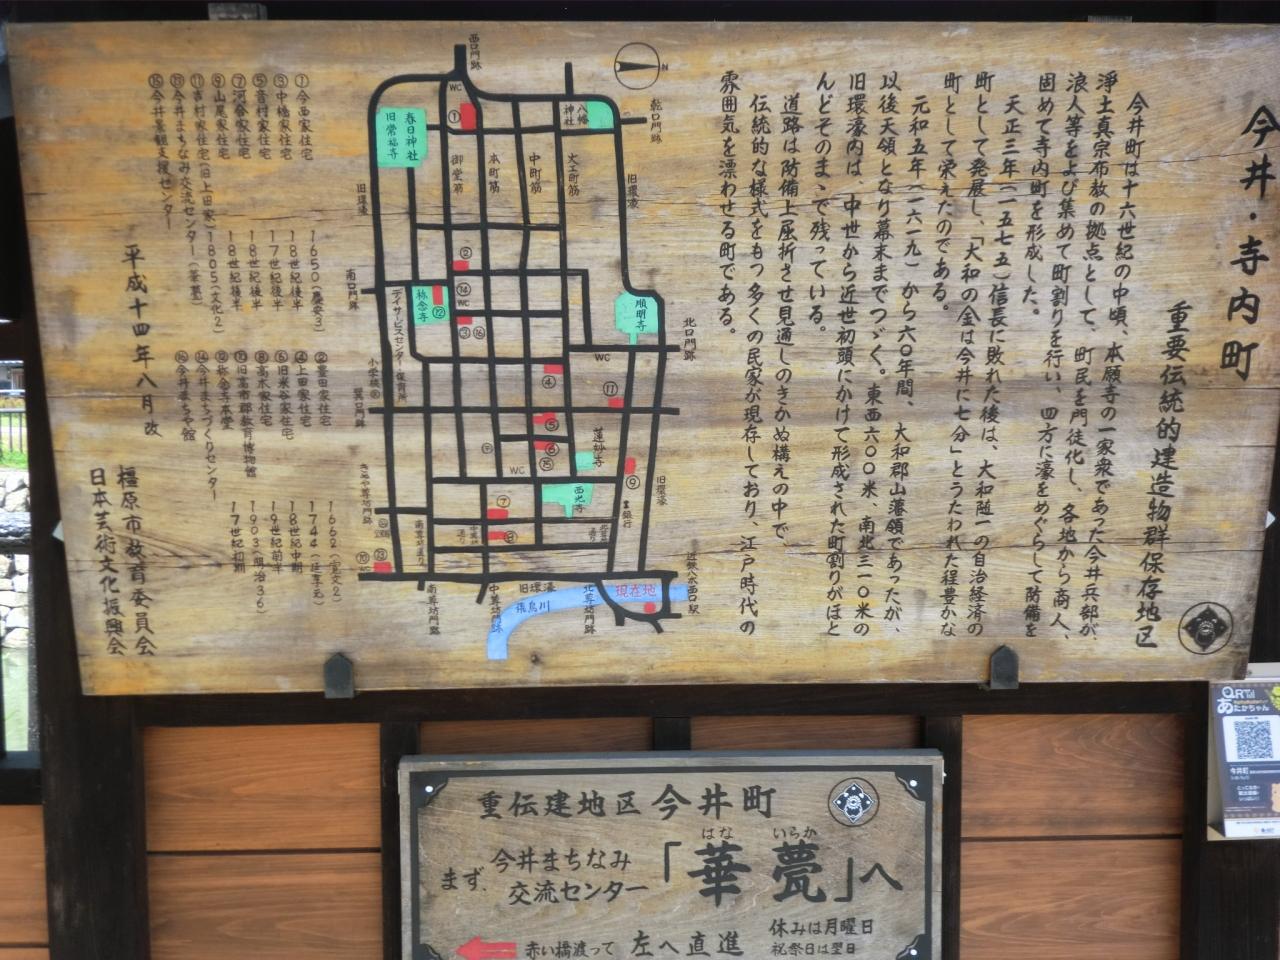 今井・寺内町
重要伝統的建造物群保存地区
今井町は十六世紀の中頃、本願寺の一家衆であった今井兵部が、
浄土真宗布教の拠点として、町民を門徒化し、各地から商人、
浪人等をよび集めて町割りを行い、四方に濠をめぐらして防備を
固めて寺内町を形成した。
天正三年(一五七五)信長に敗れた後は、大和随一の自治経済の
町として発展し、「大和の金は今井に七分」とうたわれた程豊かな
町として栄えたのである。
元和五年(一六一九)から六〇年間、大和郡山藩領であったが、
以後天領となり幕末までつづく。東西六〇〇米、南北三一〇米の
旧環濠内は、中世から近世初頭にかけて形成された町割りがほと
んどそのまゝで残っている。
道路は防備上屈折させ見通しのきかぬ構えの中で、
伝統的な様式をもつ多くの民家が現存しており、江戸時代の
雰囲気を漂わせる町である。
N
西口門跡
WC
①
春日神社
旧常福寺
八幡神社
乾口門跡
御堂筋
本町筋
中町筋
大工町筋
旧環濠
旧環濠
南口門跡
②
⑭
WC
③
⑯
称念寺
⑫
順明寺
北口門跡
デイサービスセンター・保育所
小学校
巽口門跡
WC
④
⑪
⑤
⑥
⑮
WC
蓮妙寺
西光寺
⑨
旧環濠
銀行
⑦
⑧
⑬
⑩
南尊坊通り
中尊坊通り
南尊坊門跡
中尊坊門跡
北尊坊門跡
旧環濠
飛鳥川
現在地
近鉄八木西口駅
①今西家住宅 1650(慶安3)
③中橋家住宅 18世紀後半
⑤音村家住宅 17世紀後半
⑦河合家住宅 18世紀後半
⑨山尾家住宅 18世紀後半
⑪吉村家住宅(旧上田家) 1805(文化2)
⑬今井まちなみ交流センター(華甍)
⑮今井景観支援センター
②豊田家住宅 1662(寛文2)
④上田家住宅 1744(延享元)
⑥旧米谷家住宅 18世紀中期
⑧高木家住宅 19世紀前半
⑩旧高市郡教育博物館 1903(明治36)
⑫称念寺本堂 17世紀初期
⑭今井まちづくりセンター
⑯今井まちや館
平成十四年八月 改
橿原市教育委員会
日本芸術文化振興会
重伝建地区今井町
まず、今井まちなみ
交流センター
「華甍」へ
はな いらか
赤い橋渡って 左へ直進
休みは月曜日
祝祭日は翌日
QR
あたかちゃん
今井町